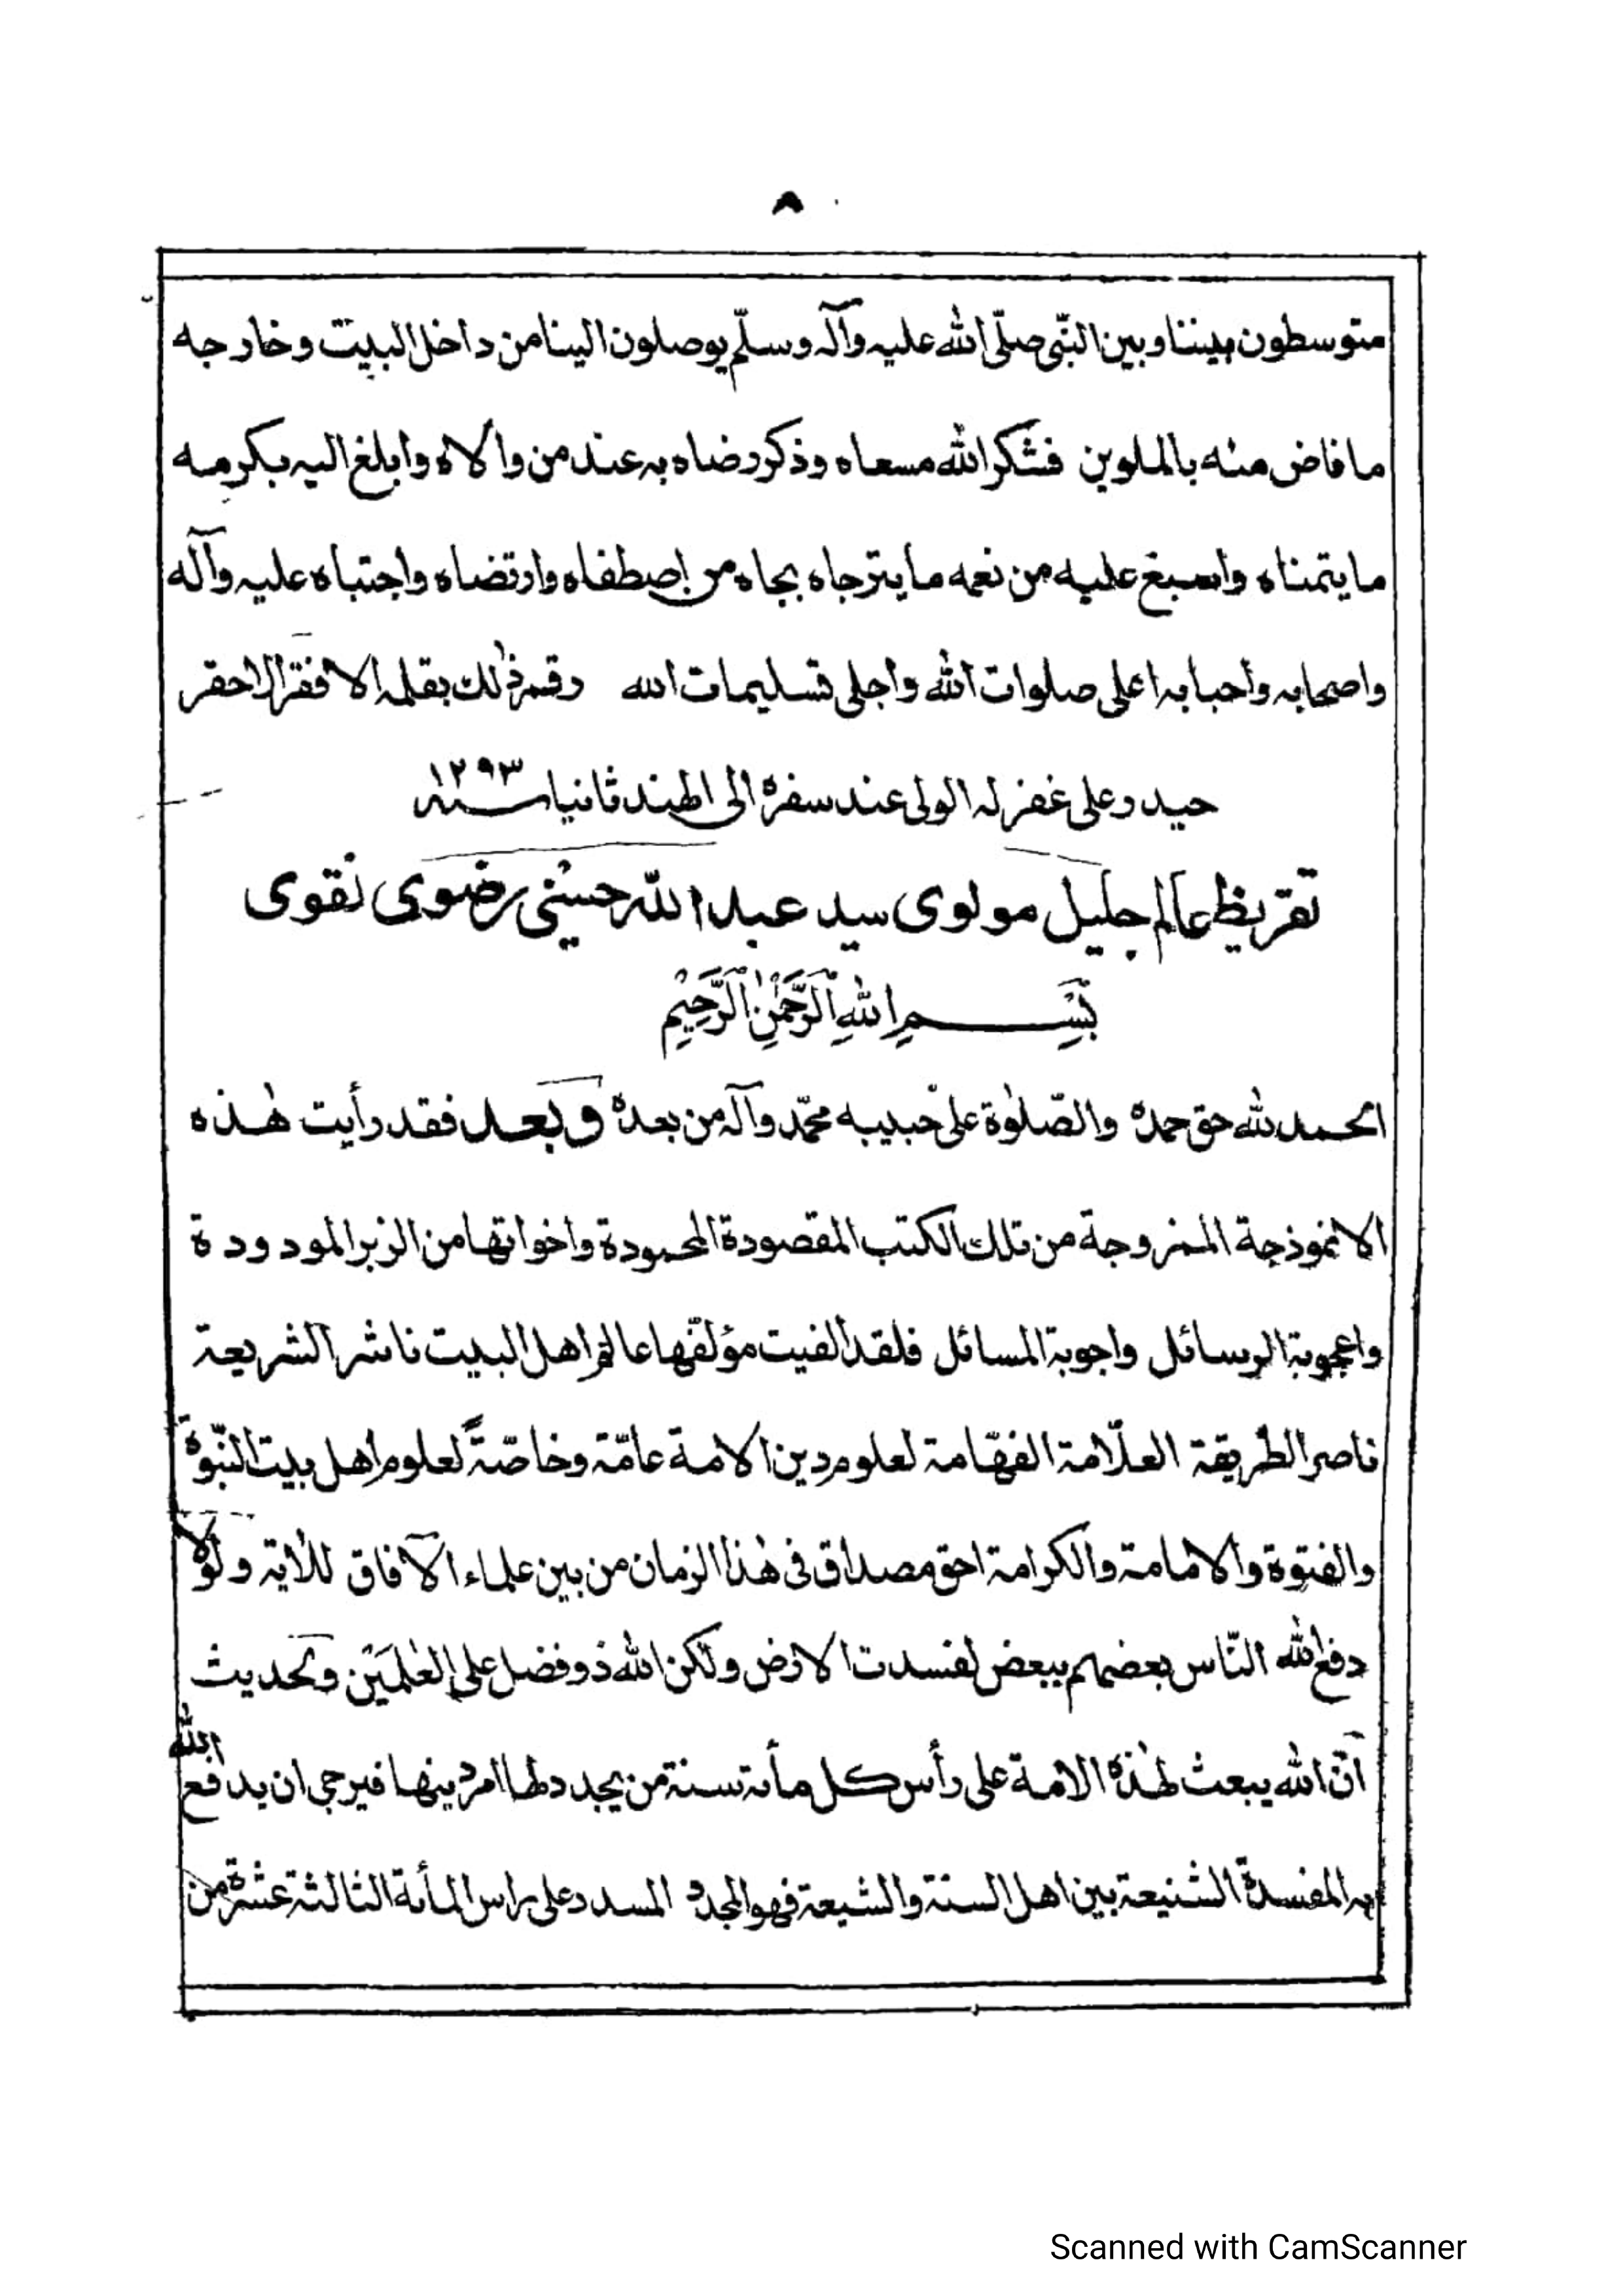 ٨
متوسطون بيننا وبين النّبى صلّى الله عليه وآله وسلّم يوصلون الينا من داخل البيت وخارجه
ما فاض منه بالملوين فشكر الله مسعاه وذكر رضاه به عند من والاه وابلغ اليه بكرمه
ما يتمناه واسبغ عليه من نعمه ما يترجاه بجاه من اصطفاه وارتضاه واجتباه عليه وآله
واصحابه وأحبابه اعلى صلوات الله واجلى تسليمات الله رقم ذٰلك بقلمه الافقر الاحقر
حيدر على غفر له الولى عند سفره الى الهند ثانيا سنه ١٢٩٣
تقريظ عالم جليل مولوى سيد عبد اللّه حسنى رضوى نقوى
بِسْمِ اللهِ الرَّحْمٰنِ الرَّحِيْمِ
الحمد لله حق حمده والصّلوٰة علىٰ حبيبه محمّد وآله من بعده وبعد فقد رأيت هٰذه
الانموذجة الممزوجة من تلك الكتب المقصودة المحمودة واخواتها من الزبر المودودة
واعجوبة الرسائل واجوبة المسائل فلقد ألفيت مؤلفّها عالم اهل البيت ناشر الشريعة
ناصر الطريقة العلّامة الفهّامة لعلوم دين الامة عامّة وخاصّةً لعلوم اهل بيت النّبوة
والفتوة والامامة والكرامة احق مصداق فى هٰذا الزمان من بين علماء الآفاق للاٰية ولولا
دفع الله النّاس بعضهم ببعض لفسدت الارض ولٰكن الله ذو فضل على العٰلمين ولحديث
انّ الله يبعث لهٰذه الامة على رأس كل مأة سنة من يجدد لها امر دينها فيرجى ان يدفع الله
به المفسدة الشنيعة بين اهل السنة والشيعة فهو المجدد المسدد على راس المأة الثالثة عشرة من
Scanned with CamScanner